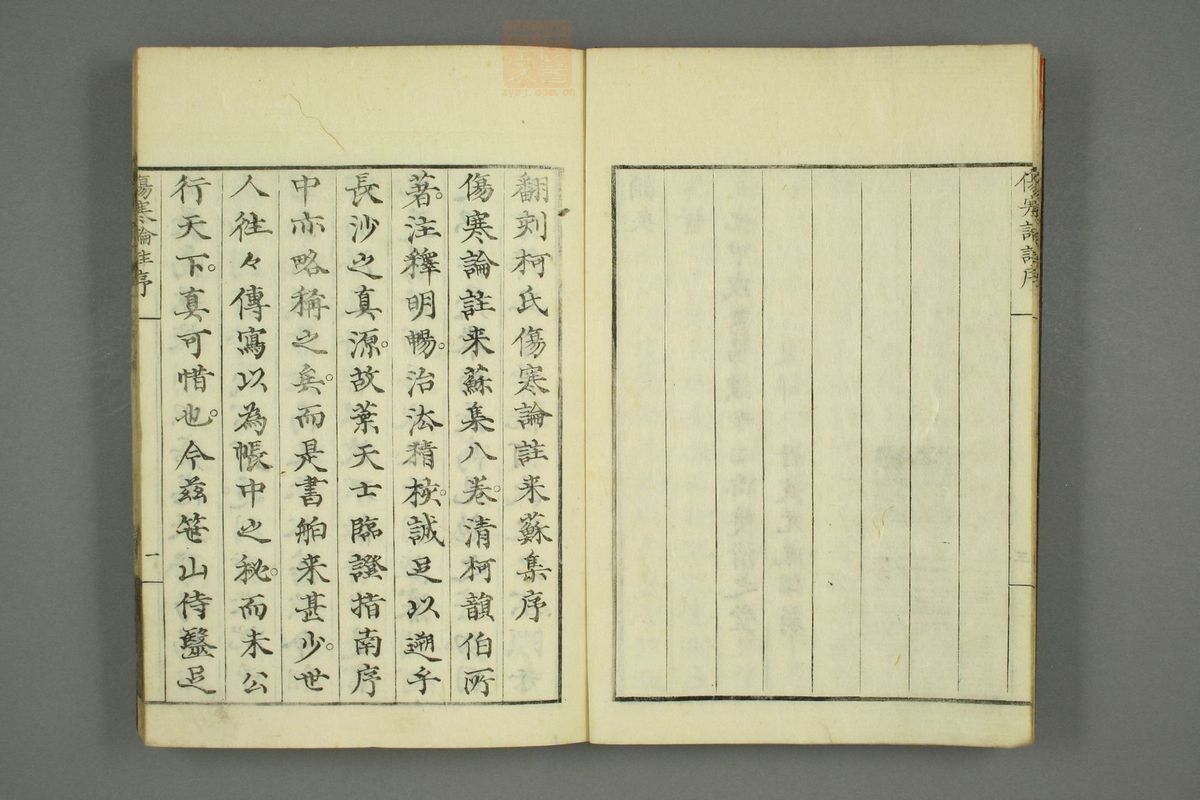 傷寒論註序
翻刻柯氏傷寒論註来蘇集序
傷寒論註来蘇集八卷。清柯韻伯所
著。注釋明暢。治法精核。誠足以遡乎
長沙之真源。故葉天士臨證指南序
中亦略稱之矣。而是書舶来甚少。世
人往々傳寫以為帳中之秘。而未公
行天下。真可惜也。今茲笹山侍醫足
傷寒論註序
一
zysj.com.cn